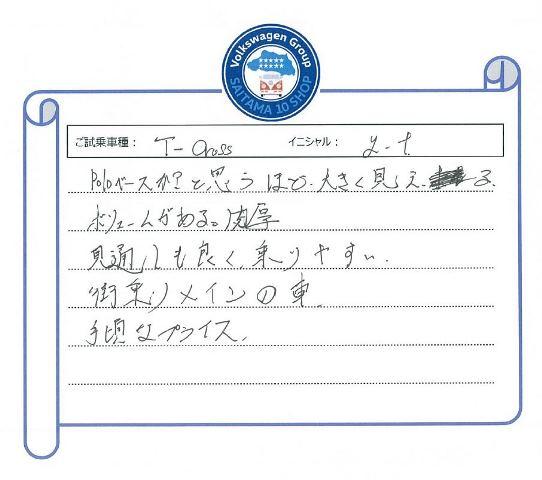 Volkswagen Group
SAITAMA 10 SHOP
ご試乗車種： T-Cross イニシャル： y-t.
Poloベースか?と思うほど、大きく見える。
ボリュームがある。肉厚
見通しも良く、乗りやすい。
街乗りメインの車。
手頃なプライス。